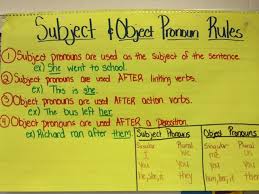 Subject & Object Pronoun Rules
① Subject pronouns are used as the subject of the sentence.
ex) She went to school.
② Subject pronouns are used AFTER linking verbs.
ex) This is she.
③ Object pronouns are used AFTER action verbs.
ex) The bus left her.
④ Object pronouns are used AFTER a preposition.
ex) Richard ran after them.
Subject Pronouns Object Pronouns
Singular Plural Singular Plural
I We me us
You You You You
He, She, it They him, her, it them